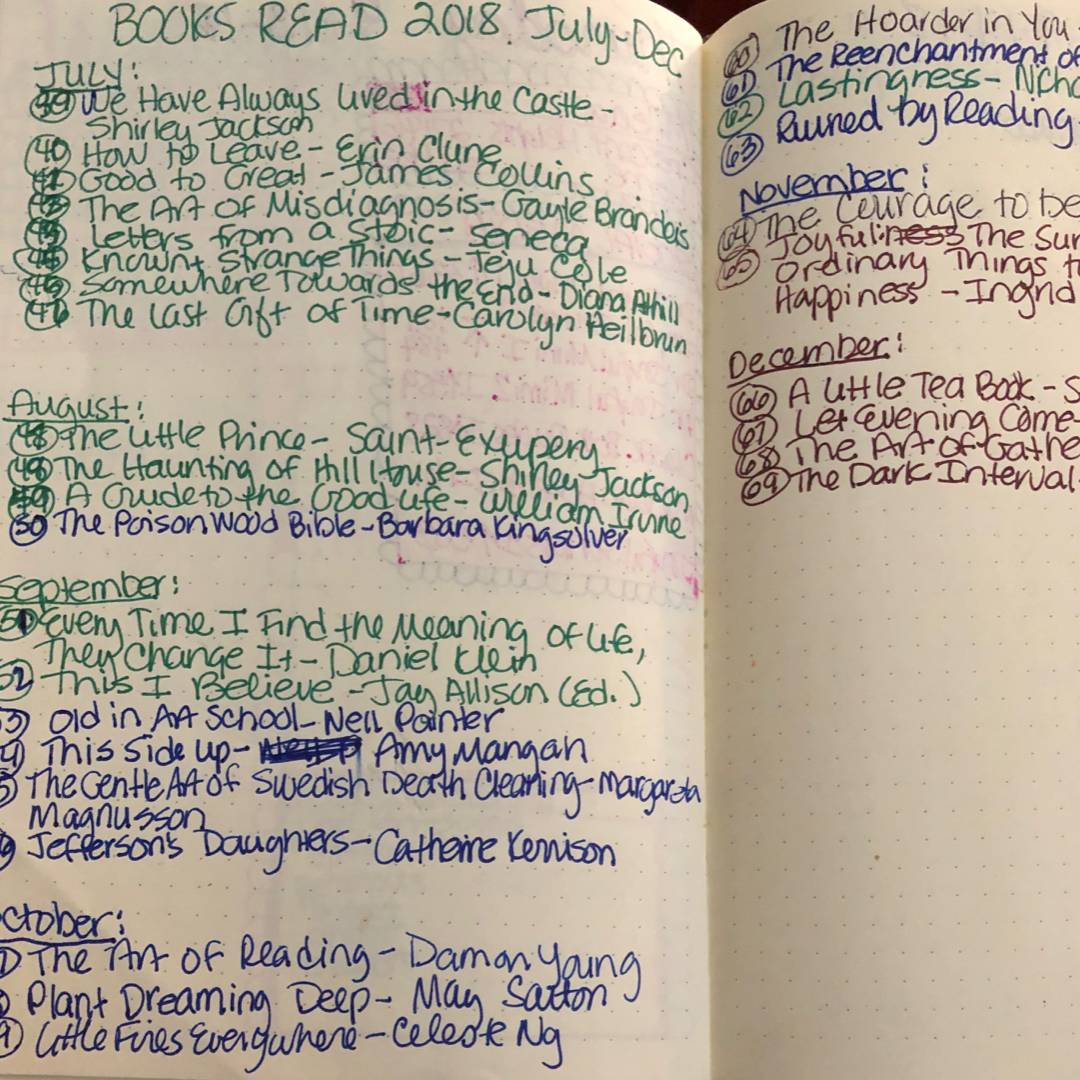 BOOKS READ 2018. July-Dec
JULY:
39 We Have Always Lived in the Castle -
Shirley Jackson
40 How to Leave - Erin Clune
41 Good to Great - James Collins
The Art of Misdiagnosis - Gayle Brandeis
Letters from a Stoic - Seneca
Known + Strange Things - Teju Cole
Somewhere Towards the End - Diana Athill
The Last Gift of Time - Carolyn Heilbrun
August:
48 The Little Prince - Saint-Exupery
The Haunting of Hill House - Shirley Jackson
A Guide to the Good Life - William Irvine
50 The Poison Wood Bible - Barbara Kingsolver
September:
51 Every Time I Find the Meaning of Life,
They Change It - Daniel Klein
52 This I Believe - Jay Allison (Ed.)
3 Old in AA School - Nell Painter
4 This Side Up - Amy Mangan
5 The Gentle Art of Swedish Death Cleaning - Margareta
Magnusson
Jefferson's Daughters - Catherine Kerrison
ctober:
The Art of Reading - Damon Young
Plant Dreaming Deep - May Sarton
9 Little Fires Everywhere - Celeste Ng
60 The Hoarder in You
61 The Reenchantment of
62 Lastingness - Nicho
63 Ruined by Reading
November:
64 The Courage to be
65 Joyful: The Sur
Ordinary Things t
Happiness - Ingrid
December:
66 A Little Tea Book - S
67 Let Evening Come -
68 The Art of Gathe
69 The Dark Interval